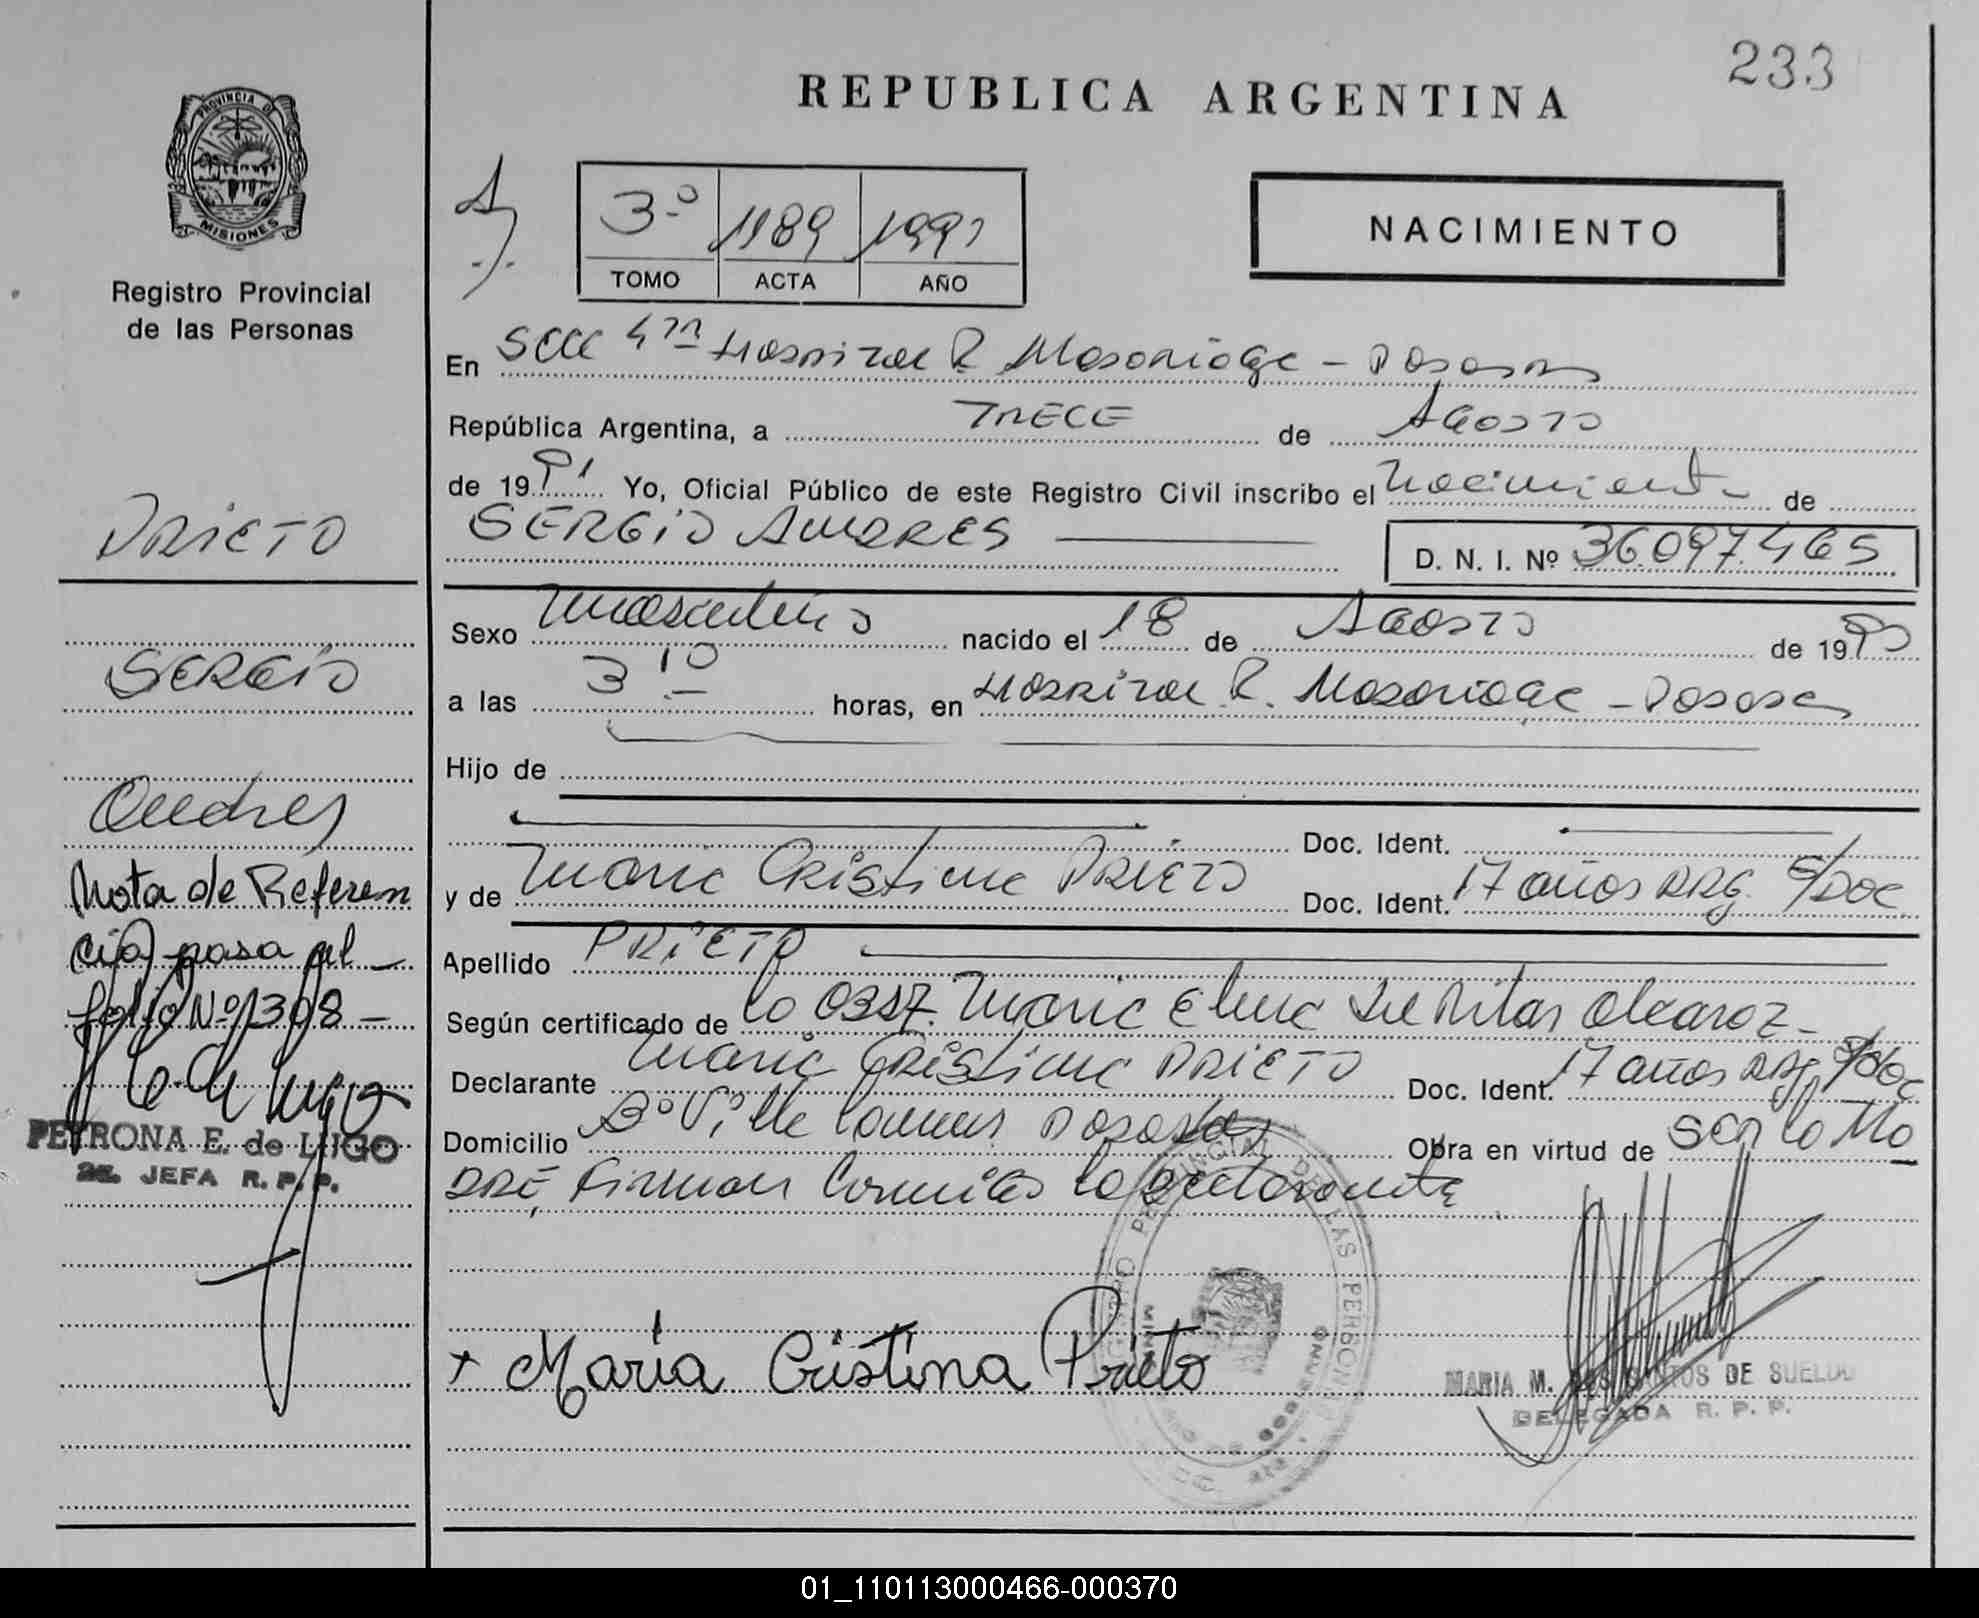 233
REPUBLICA ARGENTINA
PROVINCIA DE
MISIONES
Registro Provincial
de las Personas
3º 1189 1991
TOMO ACTA AÑO
NACIMIENTO
En Secc 4ta Hospital R. Madariaga - Posadas
República Argentina, a TRECE de Agosto
de 1991 Yo, Oficial Público de este Registro Civil inscribo el Nacimiento de
SERGIO ANDRES
D. N. I. Nº 36.097.465
Sexo Masculino nacido el 18 de Agosto de 1990
a las 3 10 horas, en Hospital R. Madariaga - Posadas
Hijo de
Doc. Ident.
y de Maria Cristina PRIETO Doc. Ident. 17 años ARG. S/DOC
Apellido PRIETO
Según certificado de la OBST. Maria Elena Del Pilar Alcaraz
Declarante Maria Cristina PRIETO Doc. Ident. 17 años Arg. S/Doc
Domicilio Bº Villa Posadas Obra en virtud de ser la Ma
DRE, Firman Conmigo la declarante
+ María Cristina Prieto
REGISTRO PROVINCIAL DE LAS PERSONAS
MARIA M. DOS SANTOS DE SUELDO
DELEGADA R. P. P.
PRIETO
SERGIO
Andres
Nota de Referen
cia pasa al
folio Nº 398
PETRONA E. de LUGO
2a. JEFA R. P. P.
01_110113000466-000370